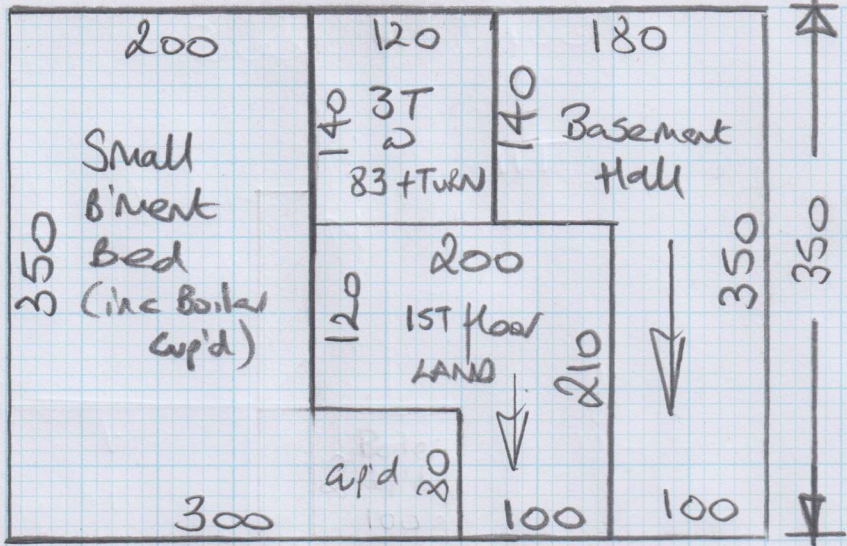 200
120
180
140
3T
@
83 + TURN
140
Basement
Hall
Small
B'ment
Bed
(inc Boiler
cup'd)
350
200
120
1ST floor
LAND
210
350
350
cup'd
80
300
100
100